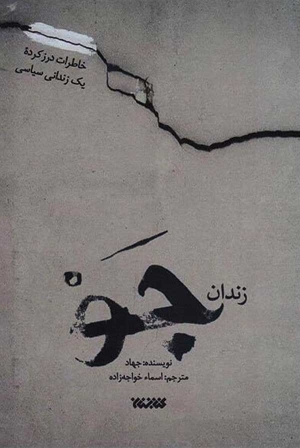 خاطرات درز کردهٔ
یک زندانی سیاسی
زندان
جَوْ
نویسنده: جهاد
مترجم: اسماء خواجه‌زاده